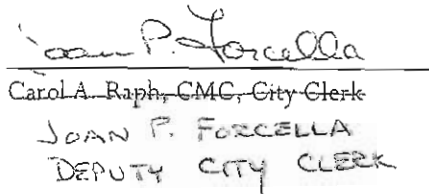 Joan P. Forcella
Carol A. Raph, CMC, City Clerk
JOAN P. FORCELLA
DEPUTY CITY CLERK